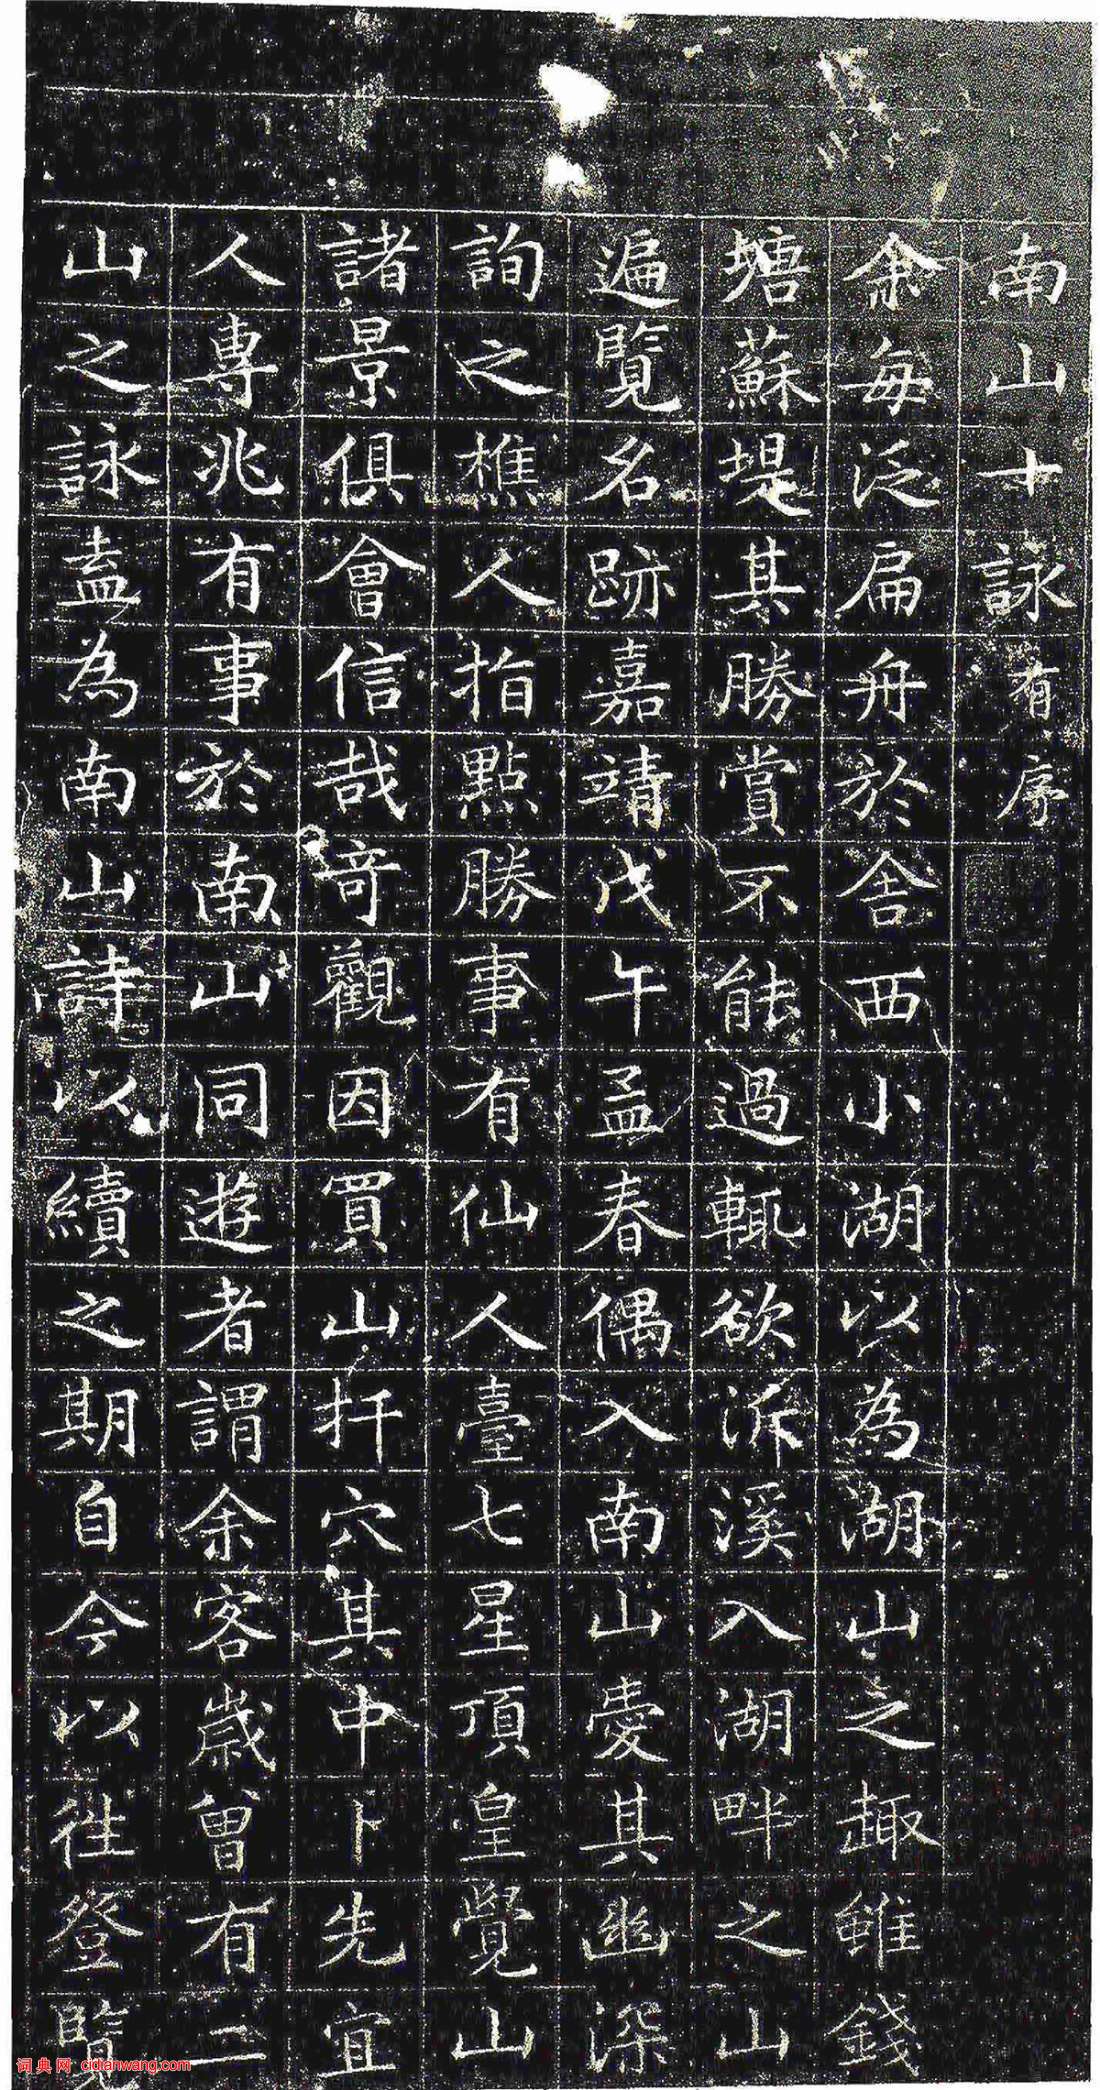 南山十詠有序
余每泛扁舟於舍西小湖以為湖山之趣雖錢
塘蘇堤其勝賞不能過輒欲泝溪入湖畔之山
遍覽名跡嘉靖戊午孟春偶入南山愛其幽深
詢之樵人指點勝事有仙人臺七星頂皇覺山
諸景俱會信哉奇觀因買山扦穴其中卜先宜
人專兆有事於南山同遊者謂余客歲曾有二
山之詠盍為南山詩以續之期自今以往登覽
词典网 cidianwang.com